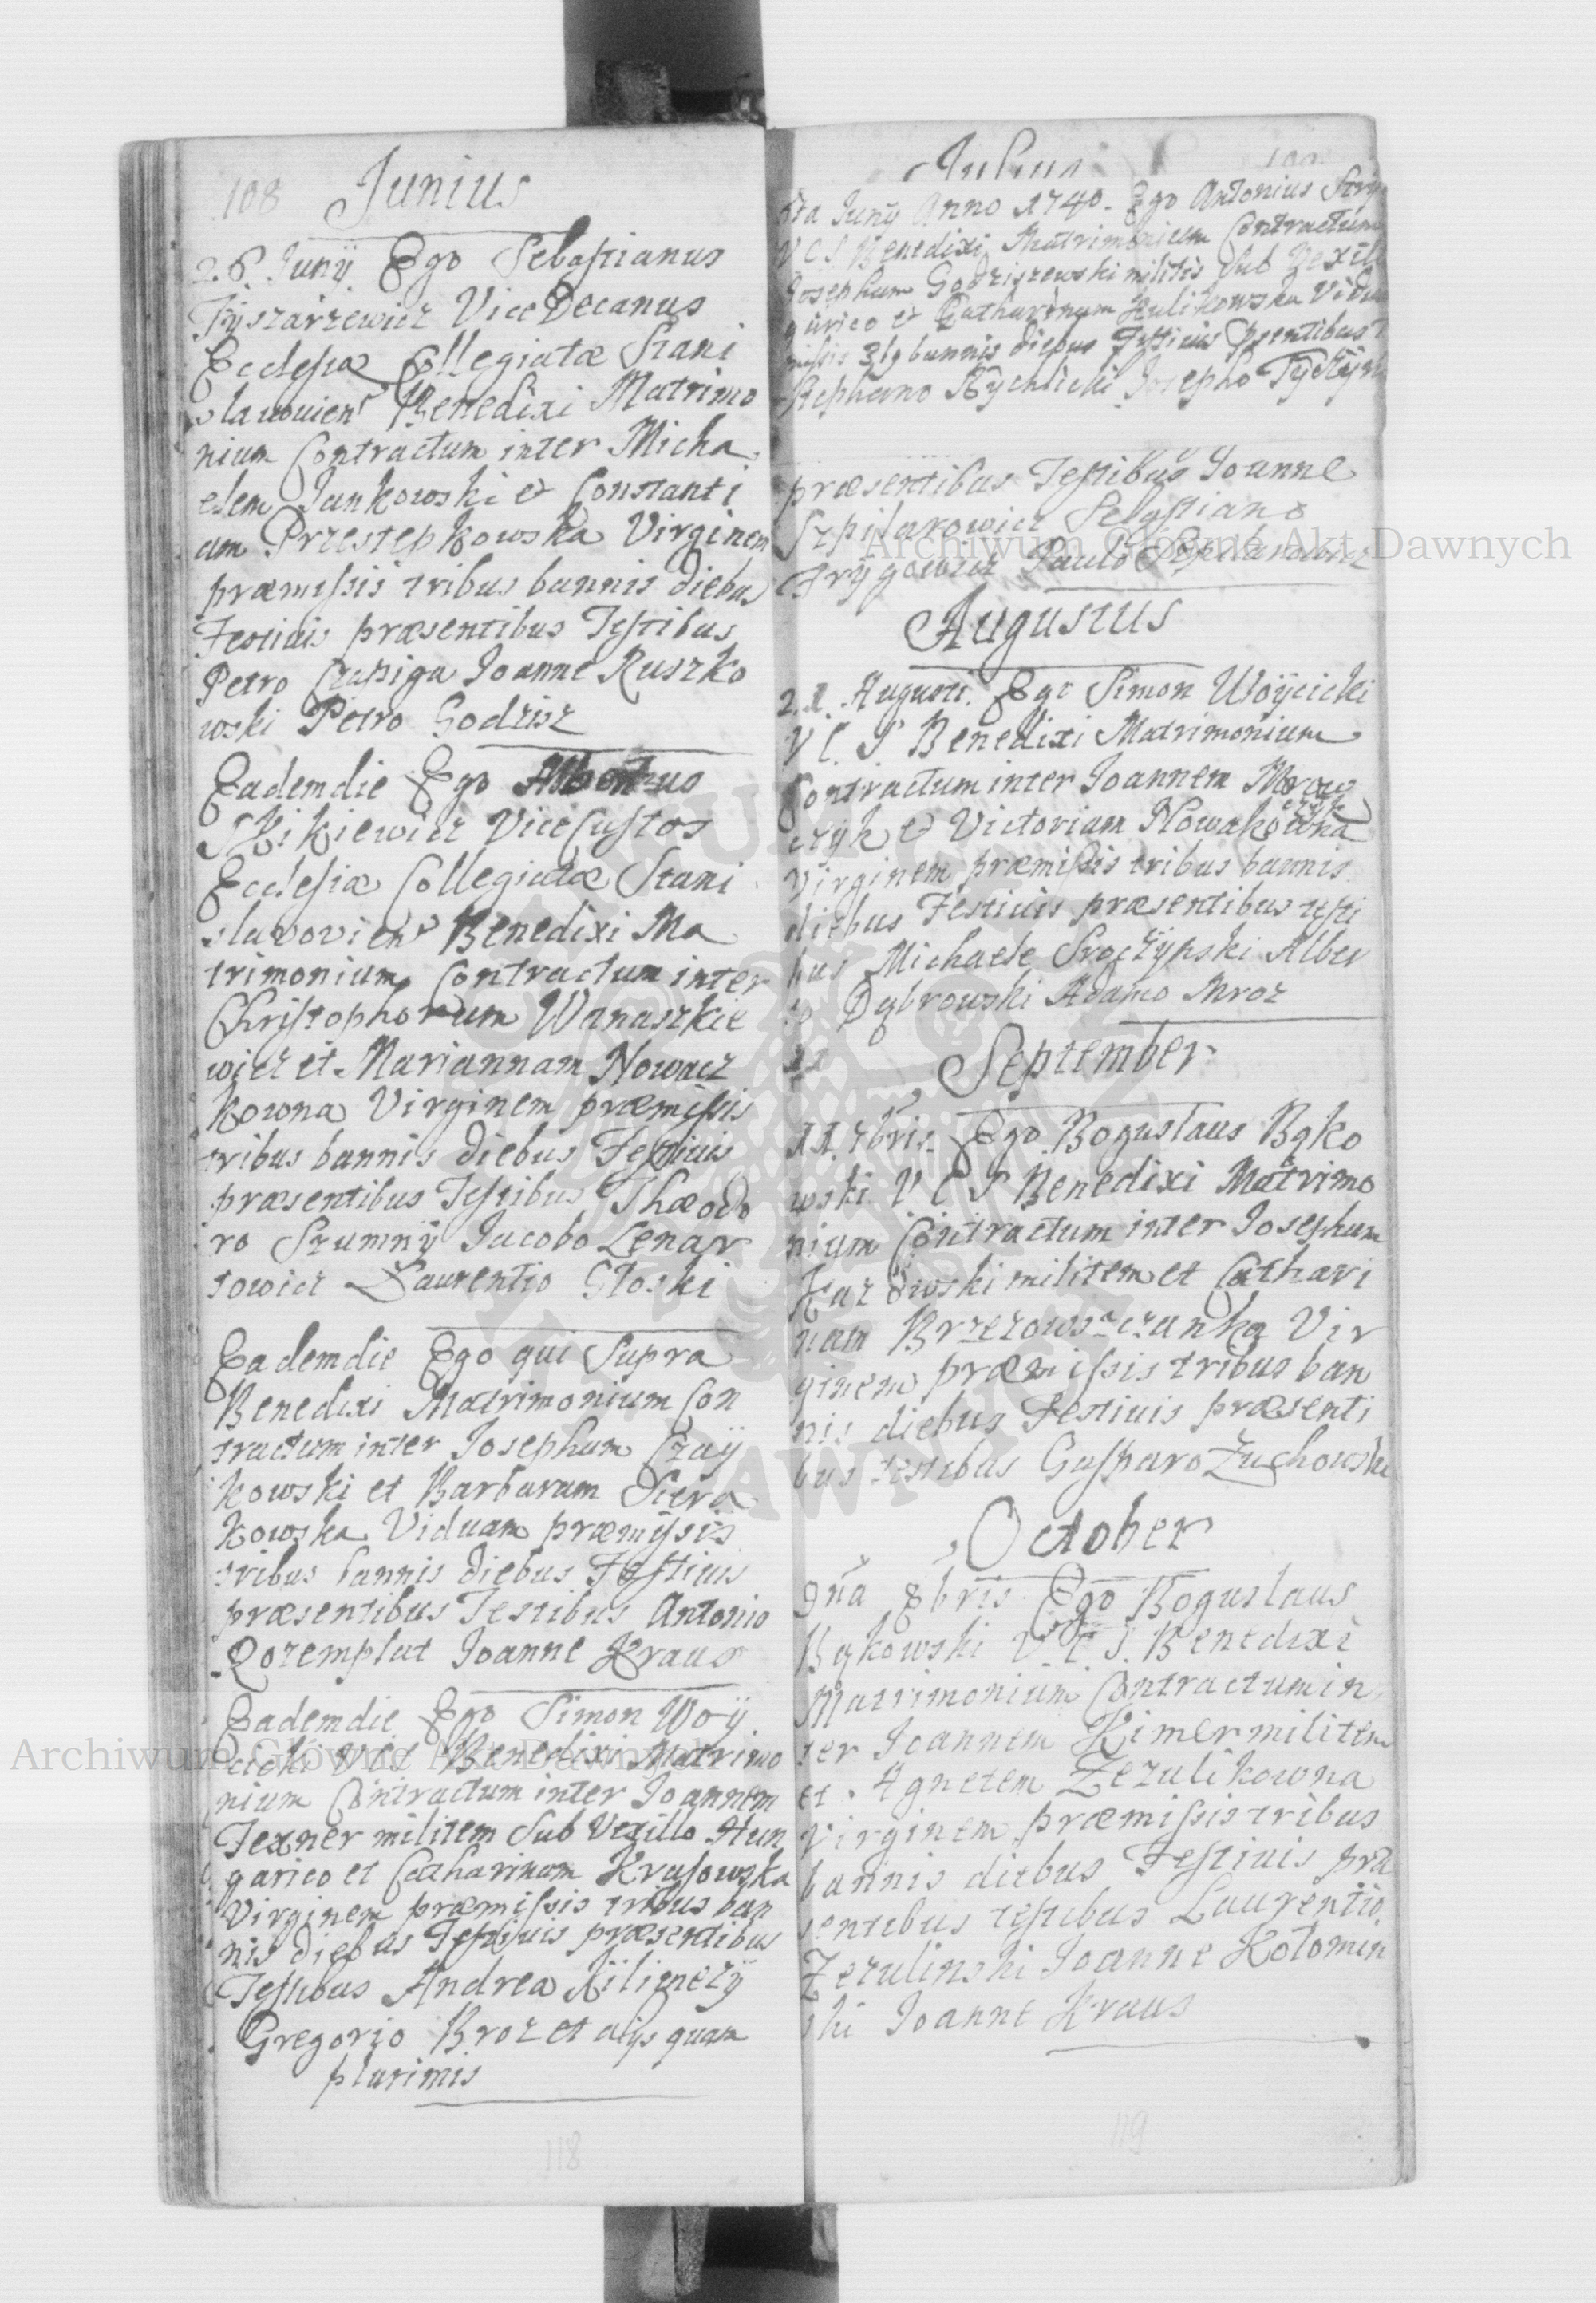 108 Junius
26. Junÿ Ego Sebastianus
Tyszarzewicz Vice Decanus
Ecclesiæ Collegiatæ Stani
slavouien Benedixi Matrimo
nium Contractum inter Micha
elem Jankowski et Constanti
am Przestepkowska Virginem
præmissis tribus bannis diebus
Festiuis præsentibus Testibus
Petro Czapiga Joanne Ruszko
wski Petro Godzisz
Eademdie Ego Albertus
Skikiewicz ViceCustos
Ecclesiæ Collegiatæ Stani
slavovien Benedixi Ma
trimonium Contractum inter
Christophorum Wanaszkie
wicz et Mariannam Nowacz
kowna Virginem præmissis
tribus bannis diebus Festiuis
præsentibus Testibus Thæodo
ro Szumnÿ Jacobo Lenar
towicz Laurentio Gloski
Eademdie Ego qui Supra
Benedixi Matrimonium Con
tractum inter Josephum Czaÿ
kowski et Barbaram Siera
kowska Viduam præmÿsis
tribus bannis diebus Festiuis
præsentibus Testibus Antonio
Rozemplat Joanne Kraus
Eademdie Ego Simon Woÿ
cicki VCS Benedixi Matrimo
nium Contractum inter Joannem
Texner militem Sub Vexillo Hun
garico et Catharinam Krasowska
Virginem præmissis tribus ban
nis diebus Festiuis præsentibus
Testibus Andrea Kilimczÿ
Gregorio Broz et alijs quam
plurimis
118
Julius
Junÿ Anno 1740. Ego Antonius
VCS Benedixi Matrimonium Contractum
Josephum Godziszewski militis Sub Vexill
garico et Catharinam Kulikowska Vidu
missis bannis diebus Festiuis
Stephano Rychlicki Josepho
præsentibus Testibus Joanne
Szpilarowicz Sebastiano
Frygowicz Paulo
Augustus
21. Augusti. Ego Simon Woÿcicki
V C. S Benedixi Matrimonium
Contractum inter Joannem Mrow
czÿk et Victoriam Nowakowna
Virginem præmissis tribus bannis
diebus Festiuis præsentibus testi
bus Michaele Alber
to Dąbrowski Adamo Mroz
September
11. 7bris. Ego Boguslaus Bąko
wski V. C S Benedixi Matrimo
nium Contractum inter Josephum
Kazdowski militem et Cathari
nam Virr
ginem præmissis tribus ban
nis diebus Festiuis præsenti
bus testibus Gasparo Zuchowski
October
9na 8bris Ego Boguslaus
Bąkowski V. C. S. Benedixi
Matrimonium Contractum in
ter Joannem Kimer militem
et Agnetem Zezulikowna
Virginem præmissis tribus
bannis diebus Festiuis præ
sentibus testibus Laurentio
Zezulinski Joanne Kolomin
ski Joanne Kraus
119
Archiwum Główne Akt Dawnych
Archiwum Główne Akt Dawnych